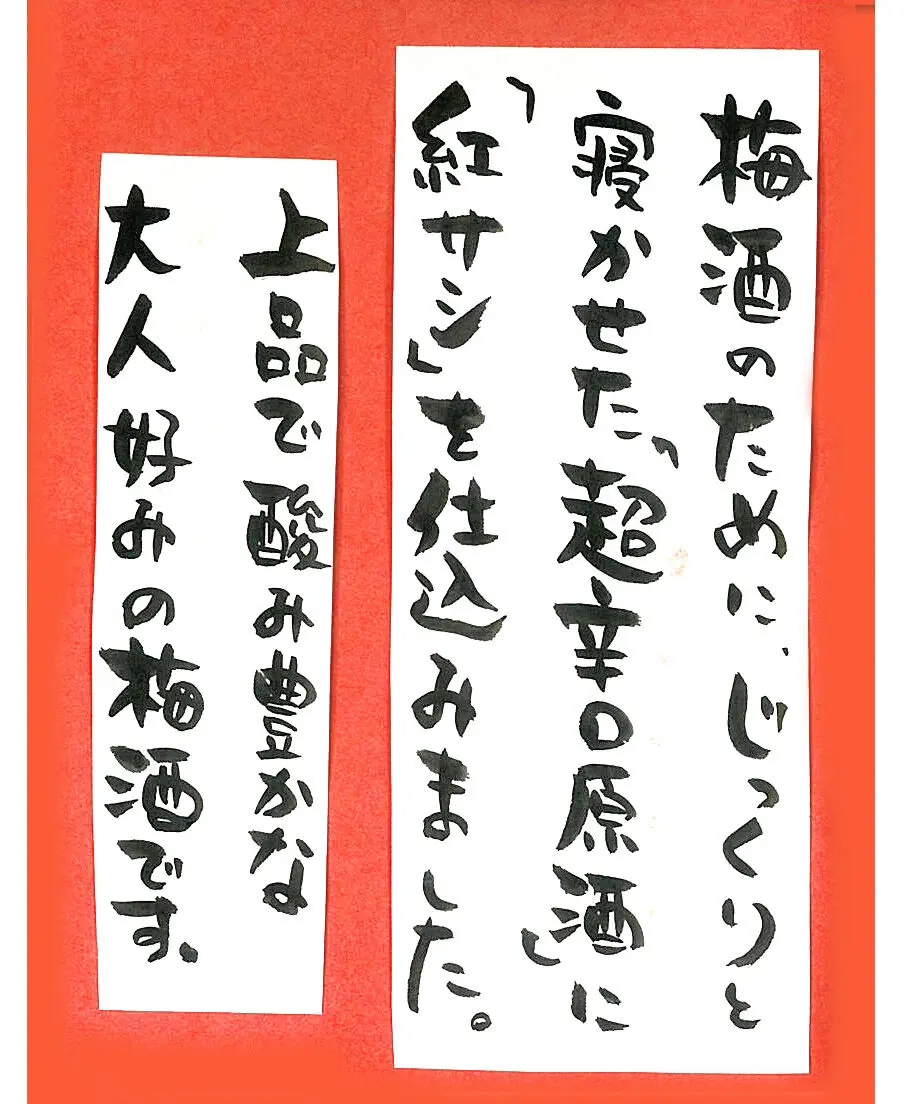 梅酒のために、じっくりと
寝かせた「超辛口原酒」に
「紅サシ」を仕込みました。
上品で酸み豊かな
大人好みの梅酒です、